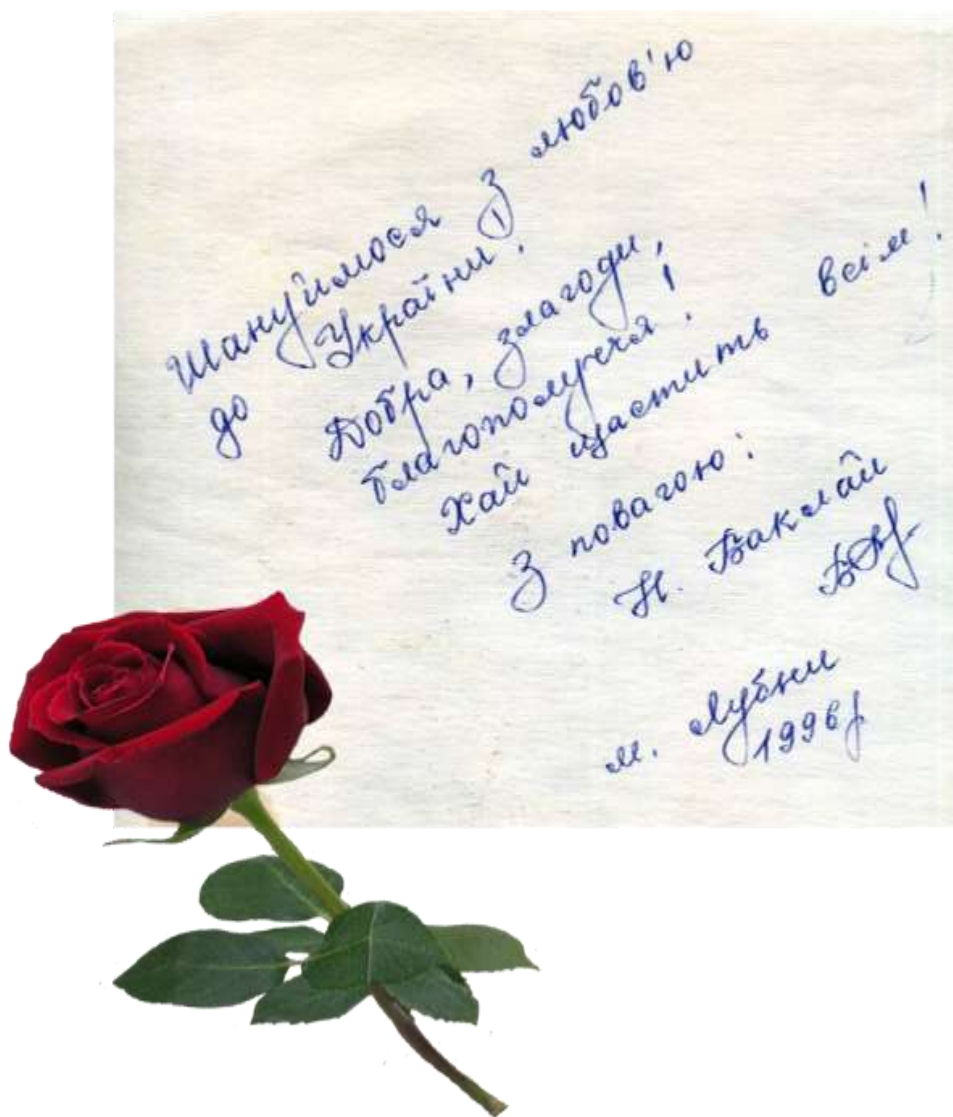 Шануймося з любов'ю
до України!
Добра, злагоди,
благополуччя!
Хай щастить всім!
З повагою:
Н. Баклай
м. Лубни
1996р